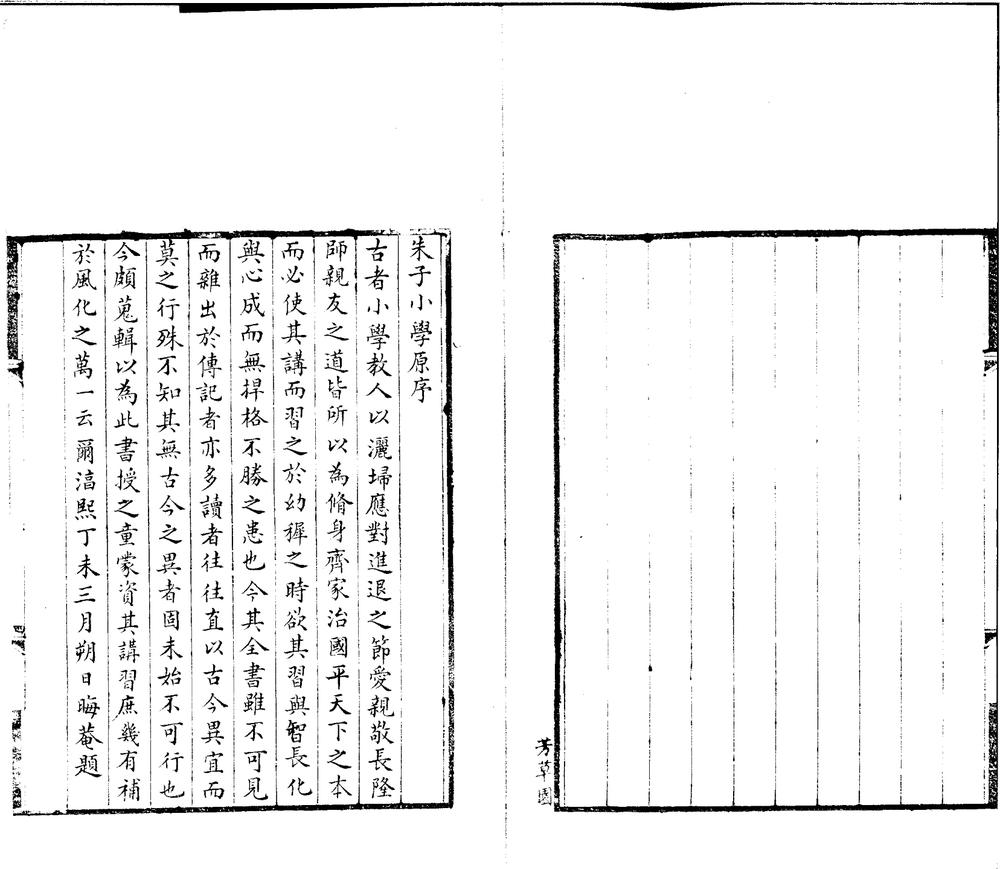 芳草園
朱子小學原序
古者小學教人以灑埽應對進退之節愛親敬長隆
師親友之道皆所以為脩身齊家治國平天下之本
而必使其講而習之於幼穉之時欲其習與智長化
與心成而無捍格不勝之患也今其全書雖不可見
而雜出於傳記者亦多讀者往往直以古今異宜而
莫之行殊不知其無古今之異者固未始不可行也
今頗蒐輯以為此書授之童蒙資其講習庶幾有補
於風化之萬一云爾淳熙丁未三月朔日晦菴題